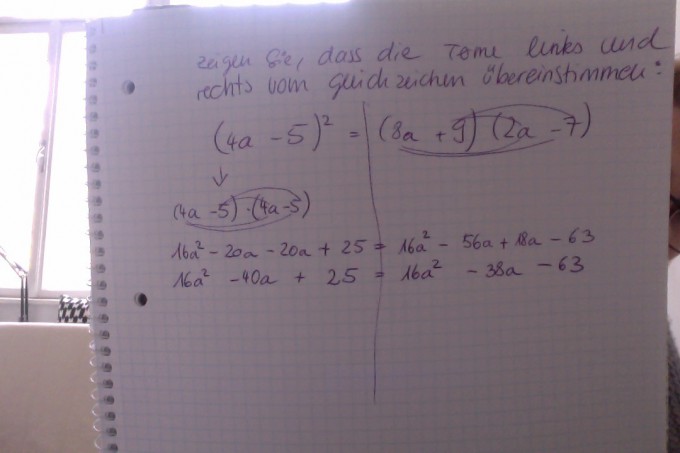 zeigen Sie, dass die Terme links und
rechts vom gleichzeichen übereinstimmen:
(4a - 5)² = (8a + 9) (2a - 7)
↓
(4a - 5) · (4a - 5)
16a² - 20a - 20a + 25 = 16a² - 56a + 18a - 63
16a² - 40a + 25 = 16a² - 38a - 63